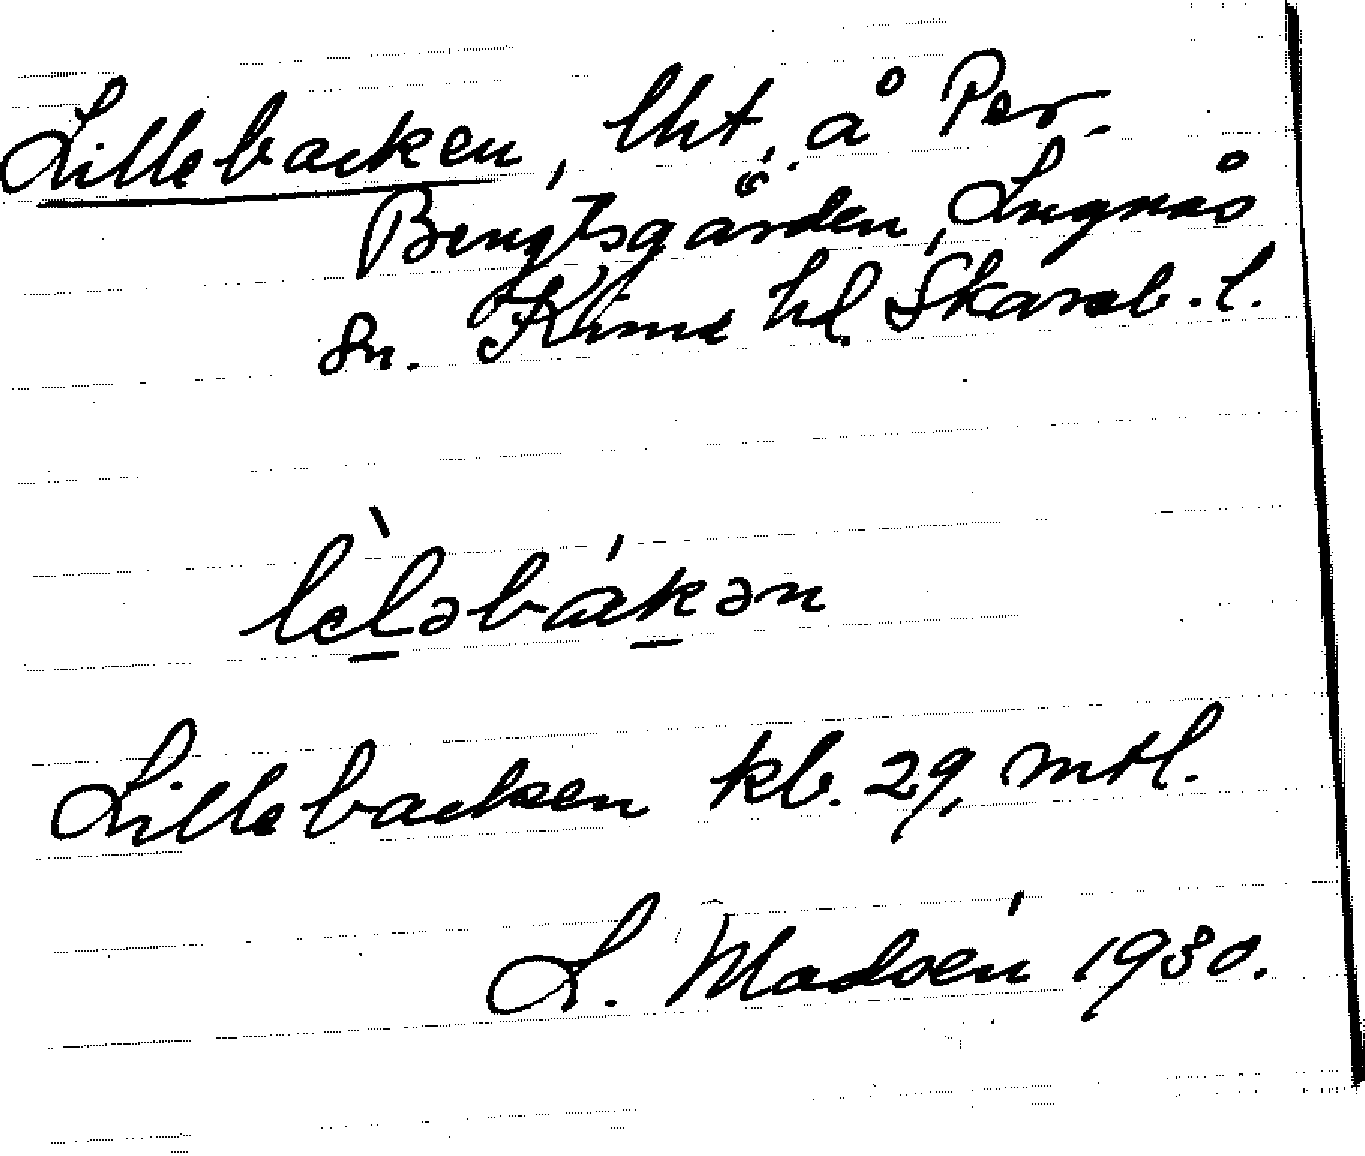 Lillebacken, lht, å Per
Bengtsgården, Lugnås
Sn. Kinne hd. Skarab. l.
lèləbákən
Lillebacken kb. 29, mtl.
L. Madsén 1930.